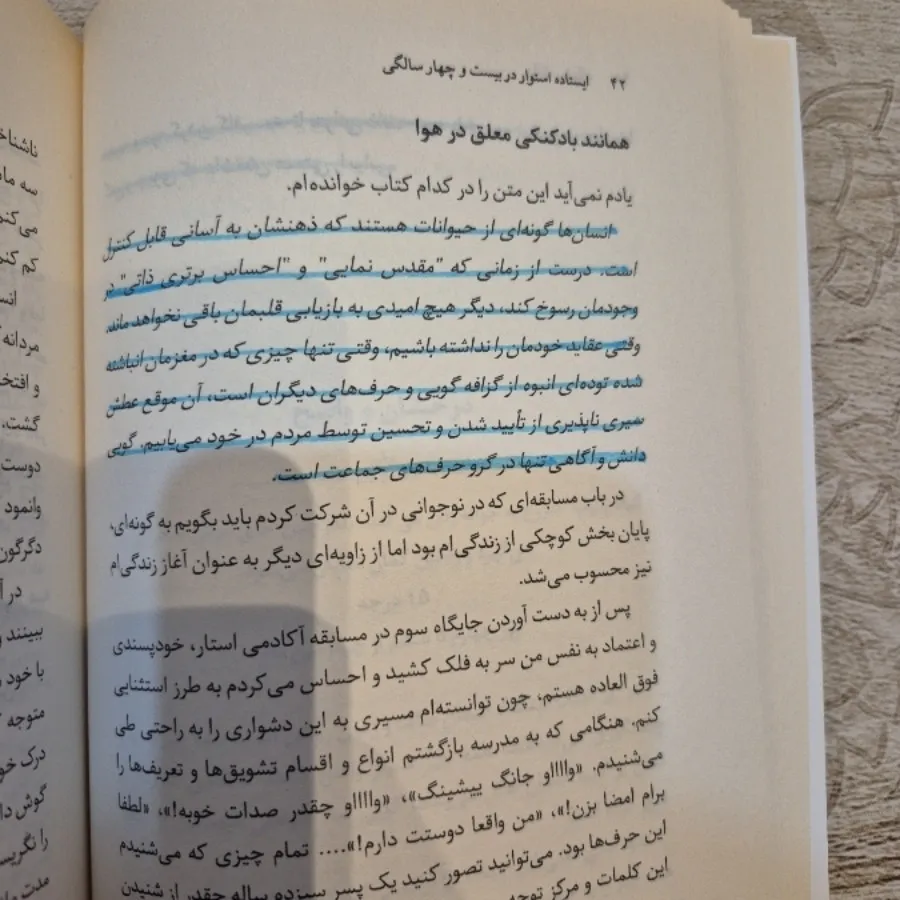 ۴۲ ایستاده استوار در بیست و چهار سالگی
همانند بادکنکی معلق در هوا
یادم نمی‌آید این متن را در کدام کتاب خوانده‌ام.
انسان‌ها گونه‌ای از حیوانات هستند که ذهنشان به آسانی قابل کنترل
است. درست از زمانی که "مقدس نمایی" و "احساس برتری ذاتی" در
وجودمان رسوخ کند، دیگر هیچ امیدی به بازیابی قلبمان باقی نخواهد ماند.
وقتی عقاید خودمان را نداشته باشیم، وقتی تنها چیزی که در مغزمان انباشته
شده توده‌ای انبوه از گزافه گویی و حرف‌های دیگران است، آن موقع عطش
سیری ناپذیری از تأیید شدن و تحسین توسط مردم در خود می‌یابیم. گویی
دانش و آگاهی تنها در گرو حرف‌های جماعت است.
در باب مسابقه‌ای که در نوجوانی در آن شرکت کردم باید بگویم به گونه‌ای،
پایان بخش کوچکی از زندگی‌ام بود اما از زاویه‌ای دیگر به عنوان آغاز زندگی‌ام
نیز محسوب می‌شد.
پس از به دست آوردن جایگاه سوم در مسابقه آکادمی استار، خودپسندی
و اعتماد به نفس من سر به فلک کشید و احساس می‌کردم به طرز استثنایی
فوق العاده هستم، چون توانسته‌ام مسیری به این دشواری را به راحتی طی
کنم. هنگامی که به مدرسه بازگشتم انواع و اقسام تشویق‌ها و تعریف‌ها را
می‌شنیدم. «واااااو جانگ ییشینگ»، «واااااو چقدر صدات خوبه!»، «لطفا
برام امضا بزن!»، «من واقعا دوستت دارم!».... تمام چیزی که می‌شنیدم
این حرف‌ها بود. می‌توانید تصور کنید یک پسر سیزده ساله چقدر از شنیدن
این کلمات و مرکز توجه
ناشناخ
سه ماه
می‌کنم
کم کنم
انس
مردانه
و افتخ
گشت،
دوست
وانمود
دگرگون
در آ
ببینند و
با خود
متوجه
درک خو
گوش دا
را نگریس
مدت